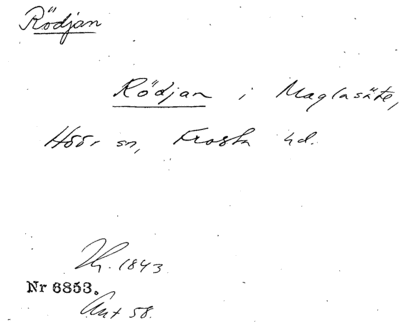 Rödjan
Rödjan i Maglasäte,
Höör sn, Frosta hd.
Hr. 1843.
Nr 6853.
Ant 58.